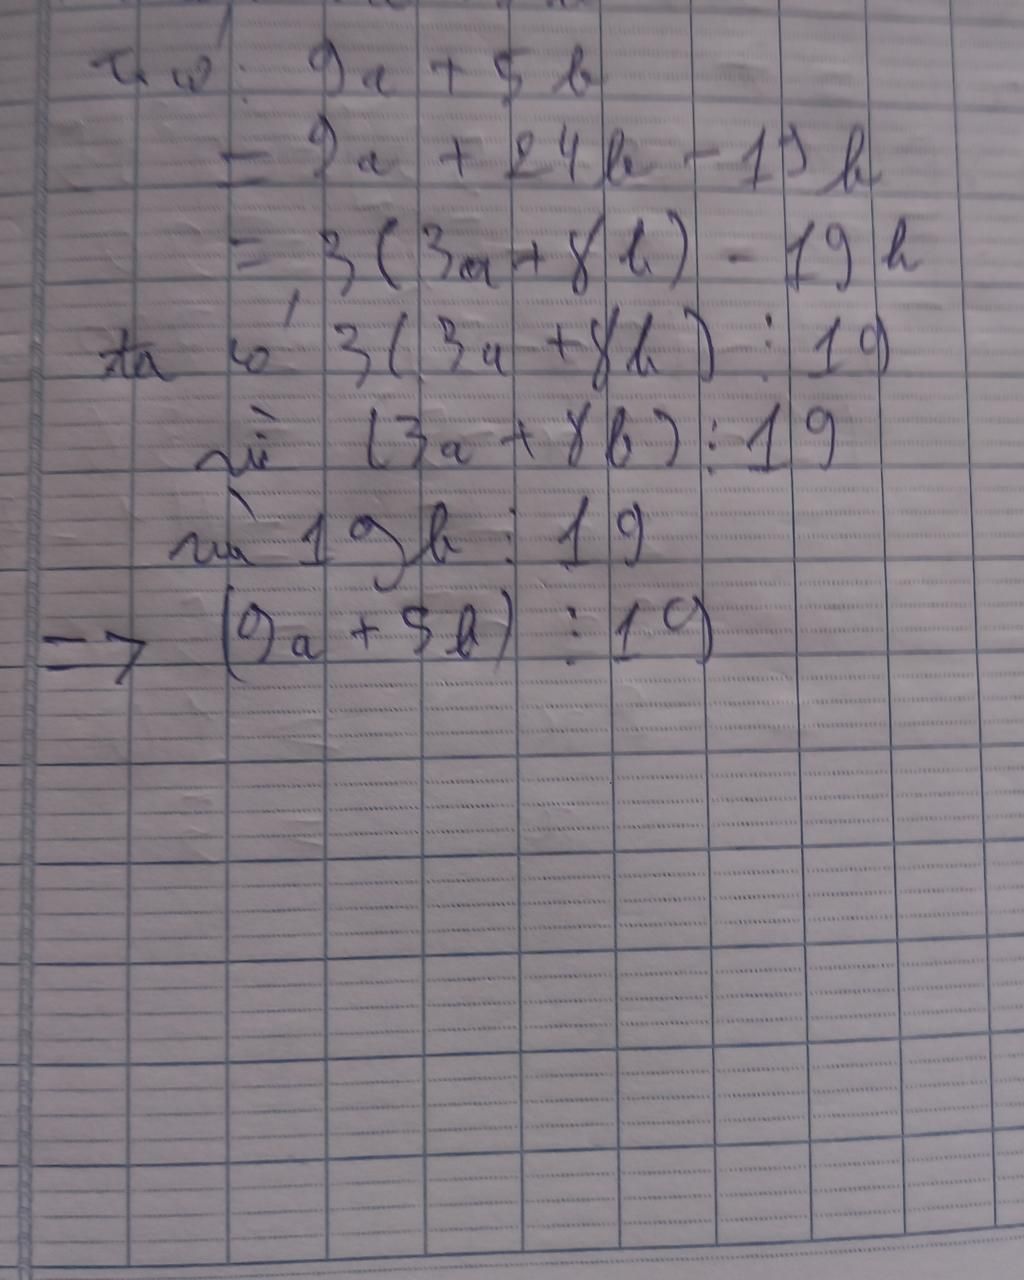 Ta có: 9a + 5b
= 9a + 24b - 19b
= 3(3a + 8b) - 19b
ta có 3(3a + 8b) ⋮ 19
vì (3a + 8b) ⋮ 19
mà 19b ⋮ 19
=> (9a + 5b) ⋮ 19